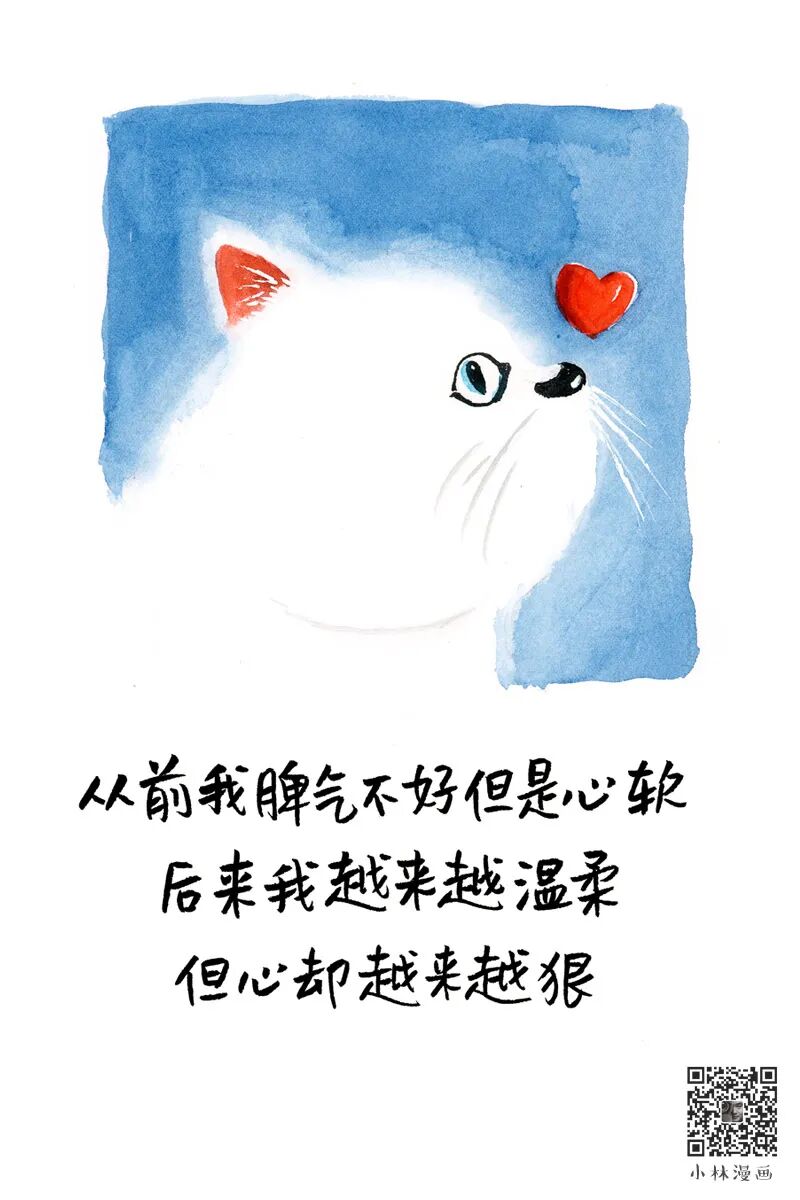 从前我脾气不好但是心软
后来我越来越温柔
但心却越来越狠
小林漫画